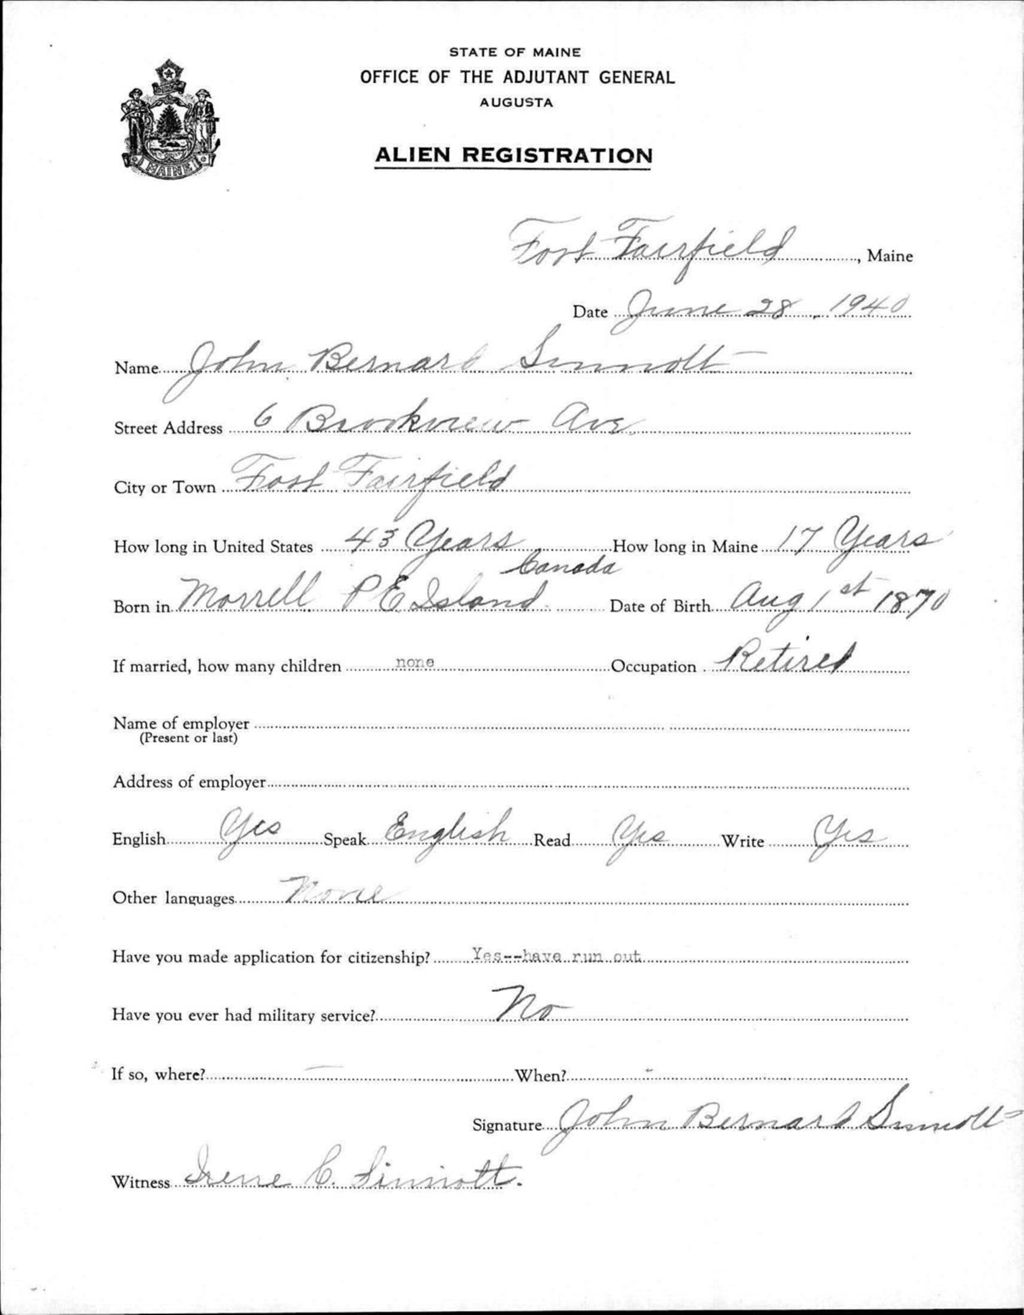 STATE OF MAINE
OFFICE OF THE ADJUTANT GENERAL
AUGUSTA
ALIEN REGISTRATION
MAINE
Fort Fairfield, Maine
Date June 28, 1940
Name John Bernard Sinnott
Street Address 6 Brookview Ave.
City or Town Fort Fairfield
How long in United States 43 Years How long in Maine 17 Years
Canada
Born in Morrell P E Island. Date of Birth Aug 1st 1870
If married, how many children none Occupation Retired
Name of employer
(Present or last)
Address of employer
English Yes Speak English Read Yes Write Yes
Other languages None
Have you made application for citizenship? Yes--have run out
Have you ever had military service? No
If so, where? — When? -
Signature John Bernard Sinnott
Witness Irene C. Sinnott.